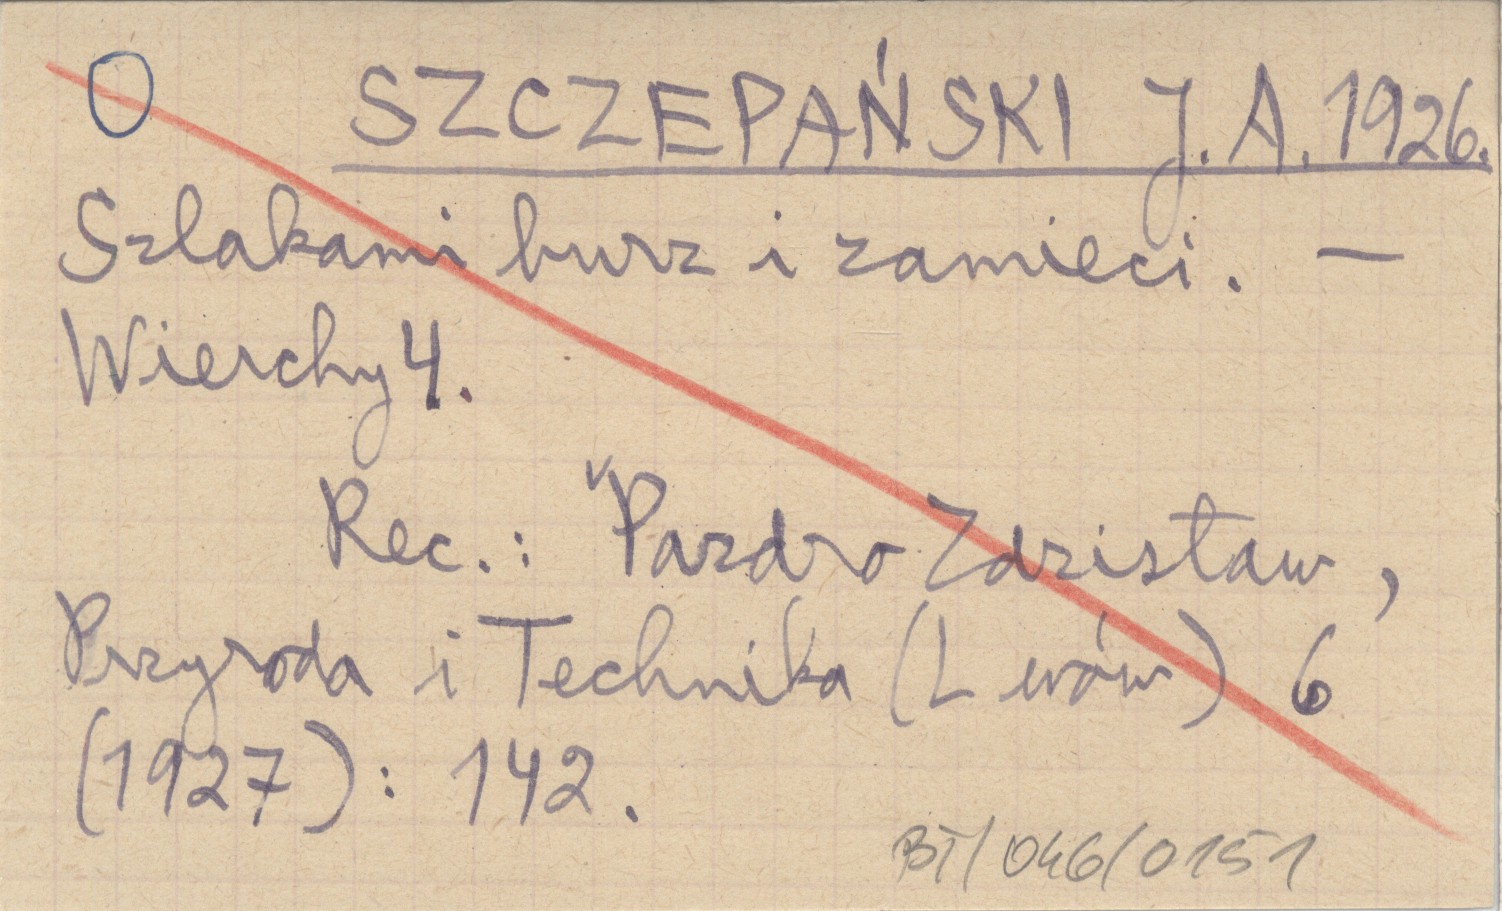 O SZCZEPAŃSKI J. A. 1926.
Szlakami burz i zamieci. —
Wierchy 4.
Rec.: Pazdro Zdzisław,
Przyroda i Technika (Lwów) 6
(1927): 142.
BT/046/0151